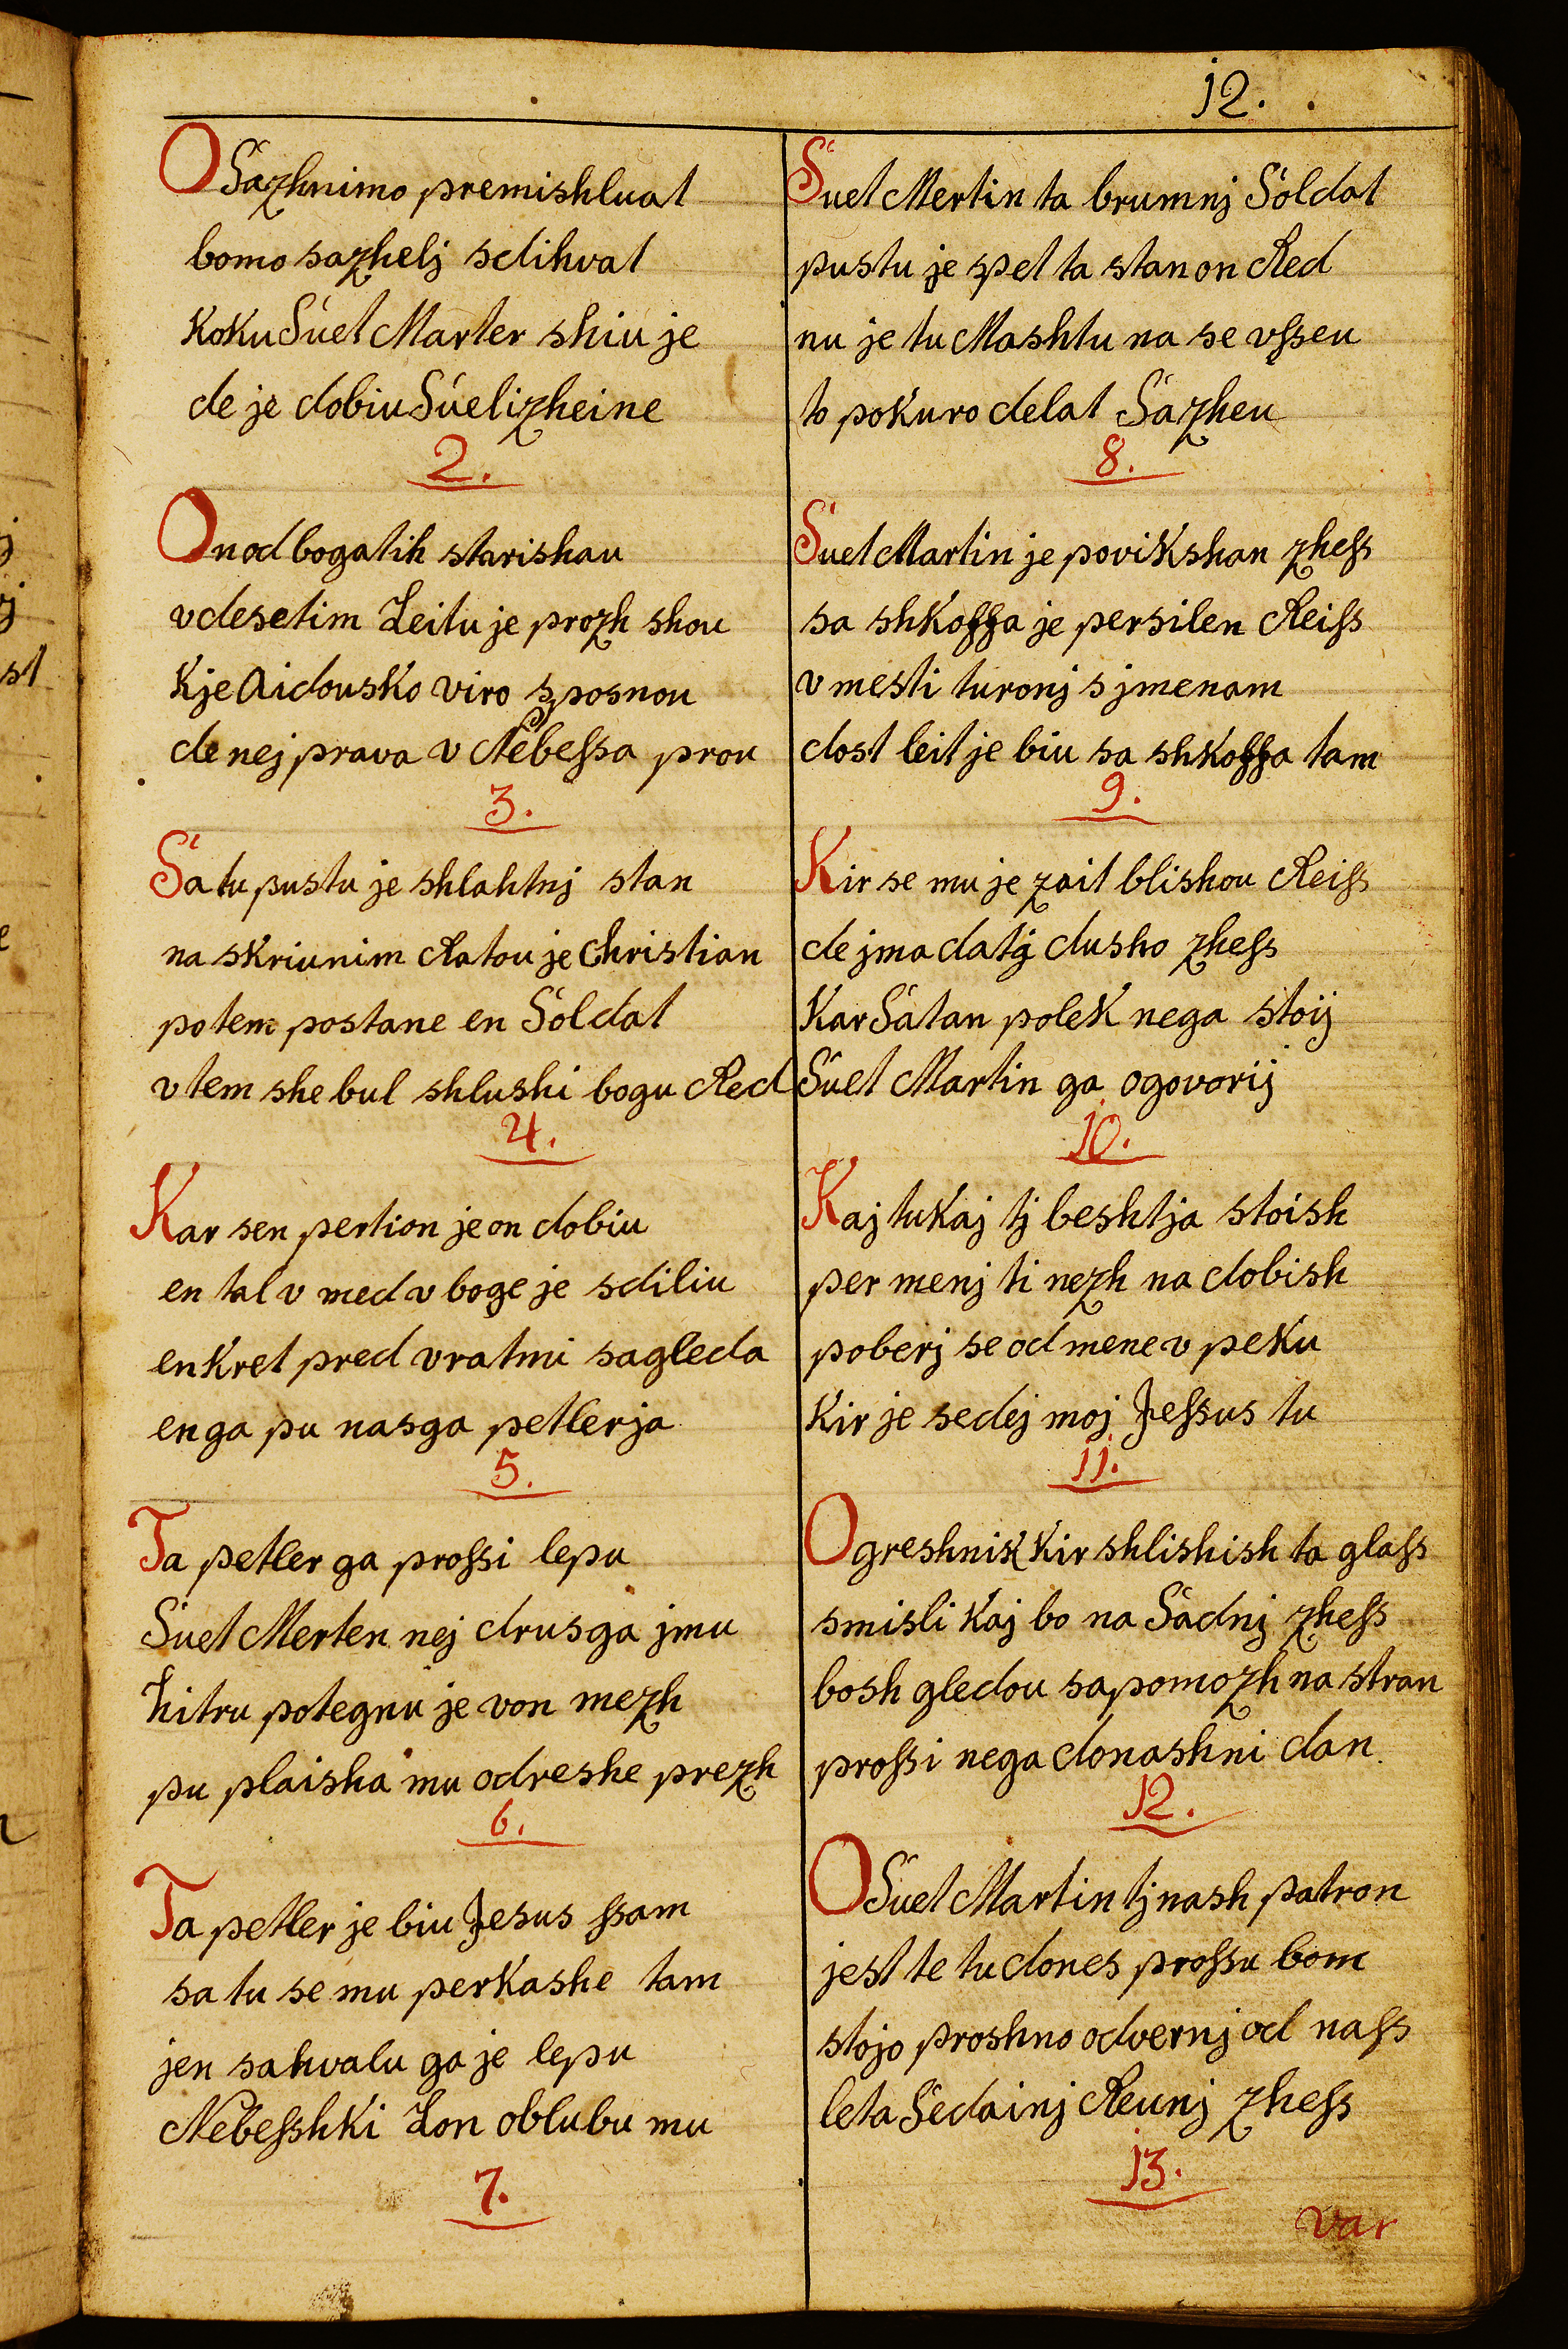 12.
O Sazhnimo premishluat
bomo sazhelj sdihvat
koku Suet Marter shiu je
de je dobiu Suelizheine
2.
On od bogatih starishau
v desetim Leitu je prozh shou
kje Aidousko viro sposnou
de nej prava v Nebessa prou
3.
Sa tu pustu je shlahtnj stan
na skriunim Ratou je Christian
potem postane en Soldat
v tem she bul shlushi bogu Red
4.
Kar sen pertion je on dobiu
en tal v med v boge je sdiliu
enkret pred vratmi sagleda
enga pu nasga petlerja
5.
Ta petler ga prossi lepu
Suet Merten nej drusga jmu
hitru potegnu je von mezh
pu plaisha mu odreshe prezh
6.
Ta petler je biu Jesus ssam
sa tu se mu perkashe tam
jen sahvalu ga je lepu
Nebesshki Lon oblubu mu
7.
Suet Mertin ta brumnj Soldat
pustu je spet ta stan on Red
nu je tu Mashtu na se vsseu
to pokuro delat Sazheu
8.
Suet Martin je povikshan zhess
sa shkoffa je persilen Reiss
v mesti turonj s jmenam
dost leit je biu sa shkoffa tam
9.
Kir se mu je zait blishou Reiss
de jma datj dusho zhess
Kar Satan polek nega stoij
Suet Martin ga ogovorij
10.
Kaj tukaj tj beshtja stoish
per menj ti nezh na dobish
poberj se od mene v peku
Kir je sedej moj Jessus tu
11.
O greshnik kir shlishish ta glass
smisli kaj bo na Sadnj zhess
bosh gledou sa pomozh na stran
prossi nega donashni dan
12.
O Suet Martin tj nash patron
jest te tu dones prossu bom
stojo proshno odvernj od nass
leta Sedainj Reunj zhess
13.
var